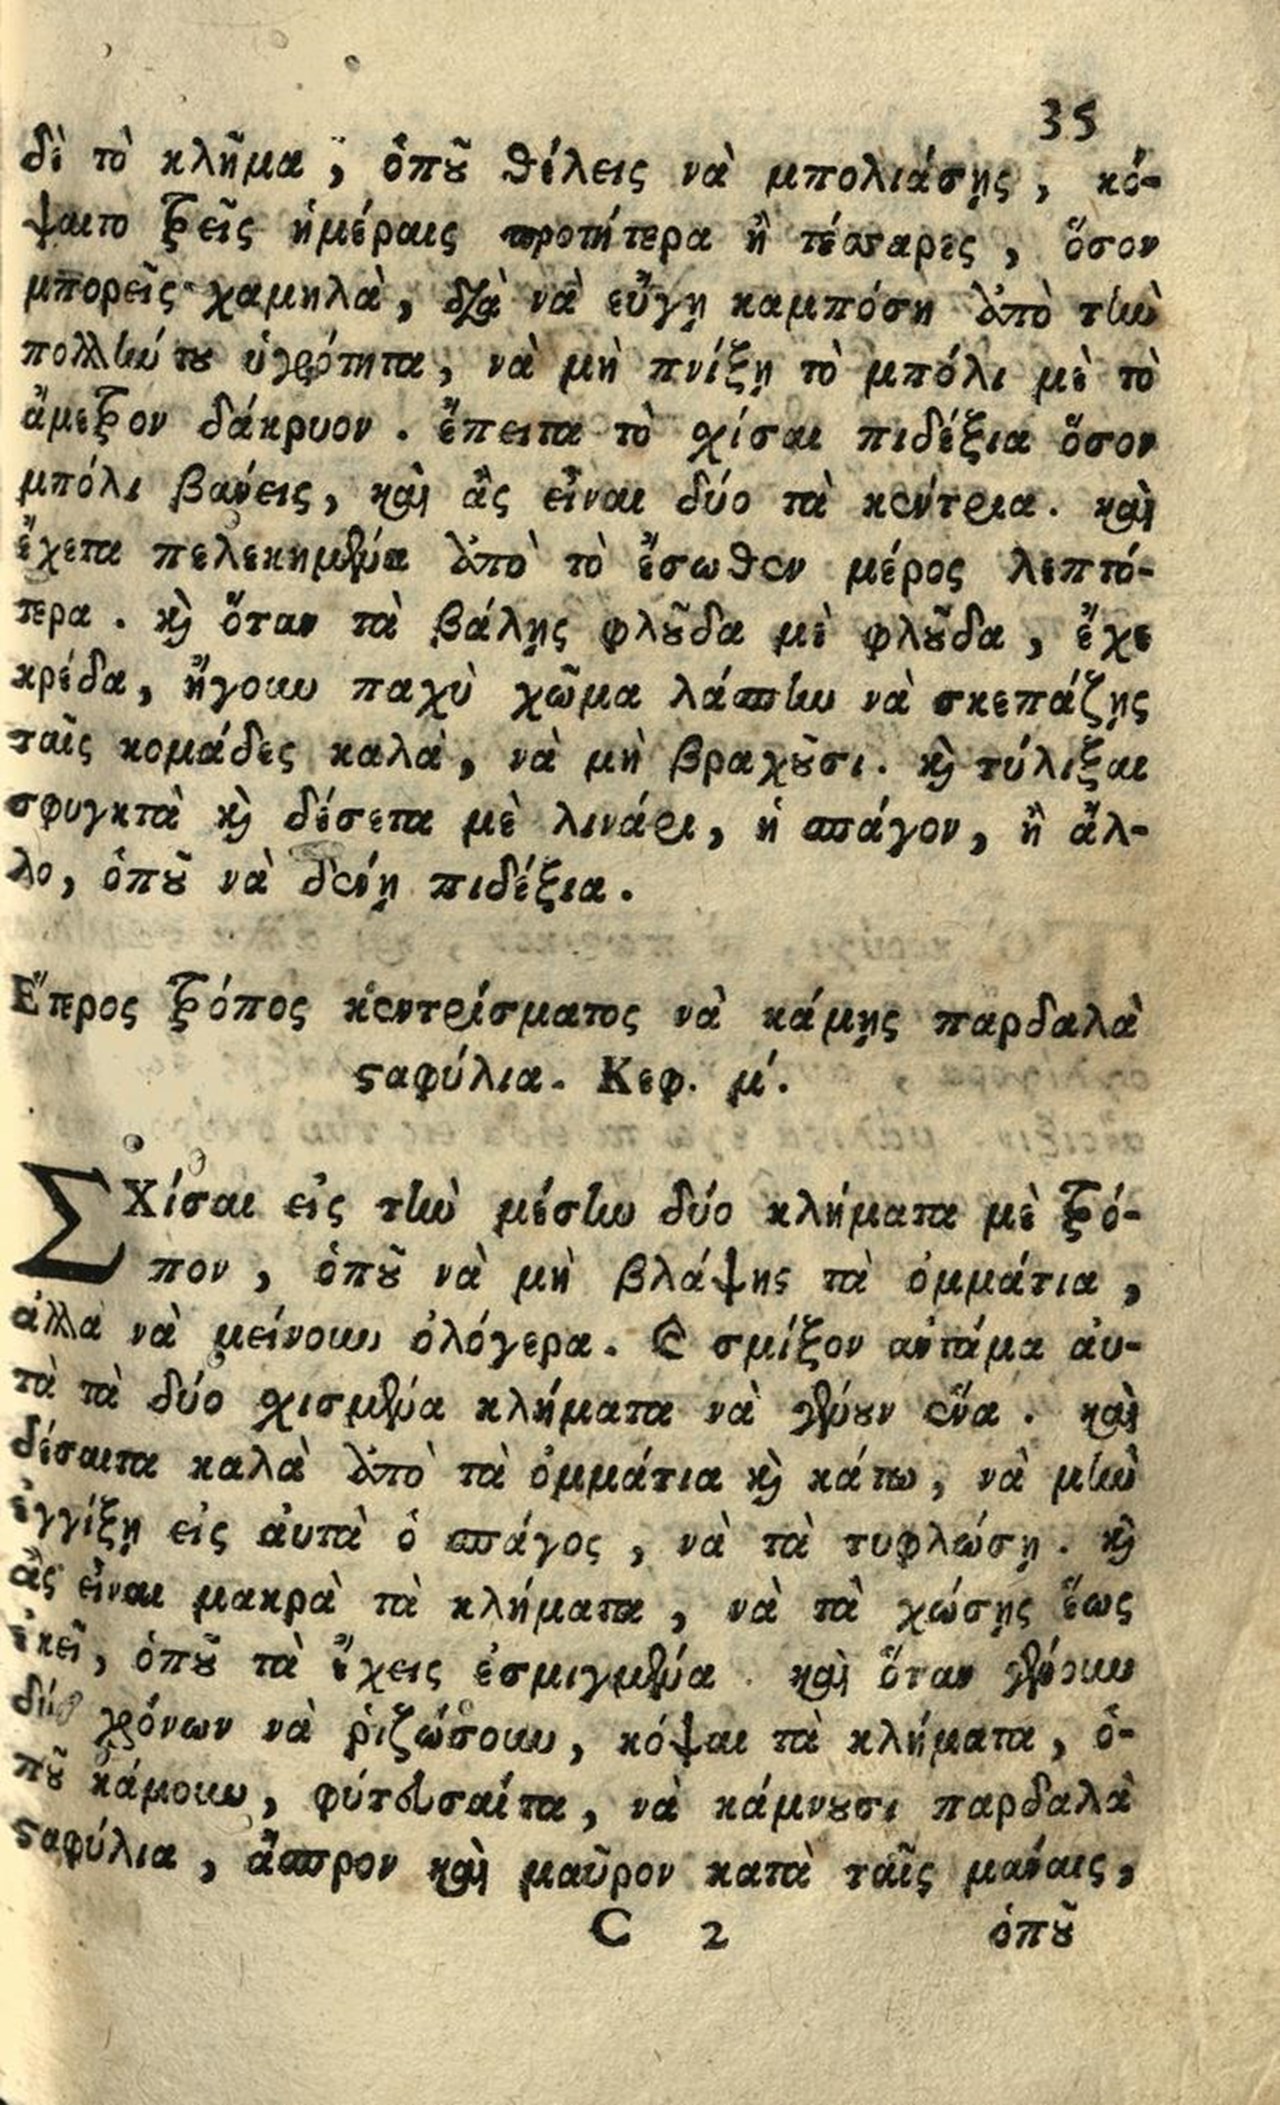 35
δὲ τὸ κλῆμα, ὁποῦ θέλεις νὰ μπολιάσῃς, κό-
ψαιτο τρεῖς ἡμέραις προτήτερα ἢ τέσσαρες, ὅσον
μπορεῖς χαμηλὰ, διὰ νὰ εὔγῃ καμπόση ἀπὸ τὴν
πολλήν του ὑγρότητα, νὰ μὴ πνίξῃ τὸ μπόλι μὲ τὸ
ἄμετρον δάκρυον. ἔπειτα τὸ σχίσαι πιδέξια ὅσον
μπόλι βανεις, καὶ ἂς εἶναι δύο τὰ κεντρια. καὶ
ἔχετα πελεκημένα ἀπὸ τὸ ἔσωθεν μέρος λεπτό-
τερα. καὶ ὅταν τὰ βάλῃς φλοῦδα μὲ φλοῦδα, ἔχε
κρέδα, ἤγουν παχὺ χῶμα λάσπην νὰ σκεπάζῃς
ταῖς κομάδες καλὰ, νὰ μὴ βραχοῦσι. καὶ τύλιξαι
σφυγκτὰ καὶ δέσετα μὲ λινάρι, ἡ σπάγον, ἢ ἄλ-
λο, ὁποῦ νὰ δένῃ πιδέξια.
Ἕτερος τρόπος κεντρίσματος νὰ κάμῃς παρδαλὰ
σταφύλια. Κεφ. μ΄.
ΣΧίσαι εἰς τὴν μέσην δύο κλήματα μὲ τρό-
πον, ὁποῦ νὰ μὴ βλάψῃς τὰ ὀμμάτια,
ἀλλὰ νὰ μείνουν ὁλόγερα. Καὶ σμίξον αντάμα ἀυ-
τὰ τὰ δύο σχισμένα κλήματα νὰ γένουν ἕνα. καὶ
δέσαιτα καλὰ ἀπὸ τὰ ὀμμάτια καὶ κάτω, νὰ μὴν
ἐγγίξῃ εἰς ἀυτὰ ὁ σπάγος, νὰ τὰ τυφλώσῃ. καὶ
ἂς εἶναι μακρὰ τὰ κλήματα, νὰ τὰ χώσῃς ἕως
ἐκεῖ, ὁποῦ τὰ ἔχεις ἐσμιγμένα. καὶ ὅταν γένουν
δύο χρόνων νὰ ῥιζώσουν, κόψαι τὰ κλήματα, ὁ-
ποῦ κάμουν, φύτευσαίτα, νὰ κάμνουσι παρδαλὰ
σταφύλια, ἄσπρον καὶ μαῦρον κατὰ ταῖς μάναις,
C 2 ὁποῦ